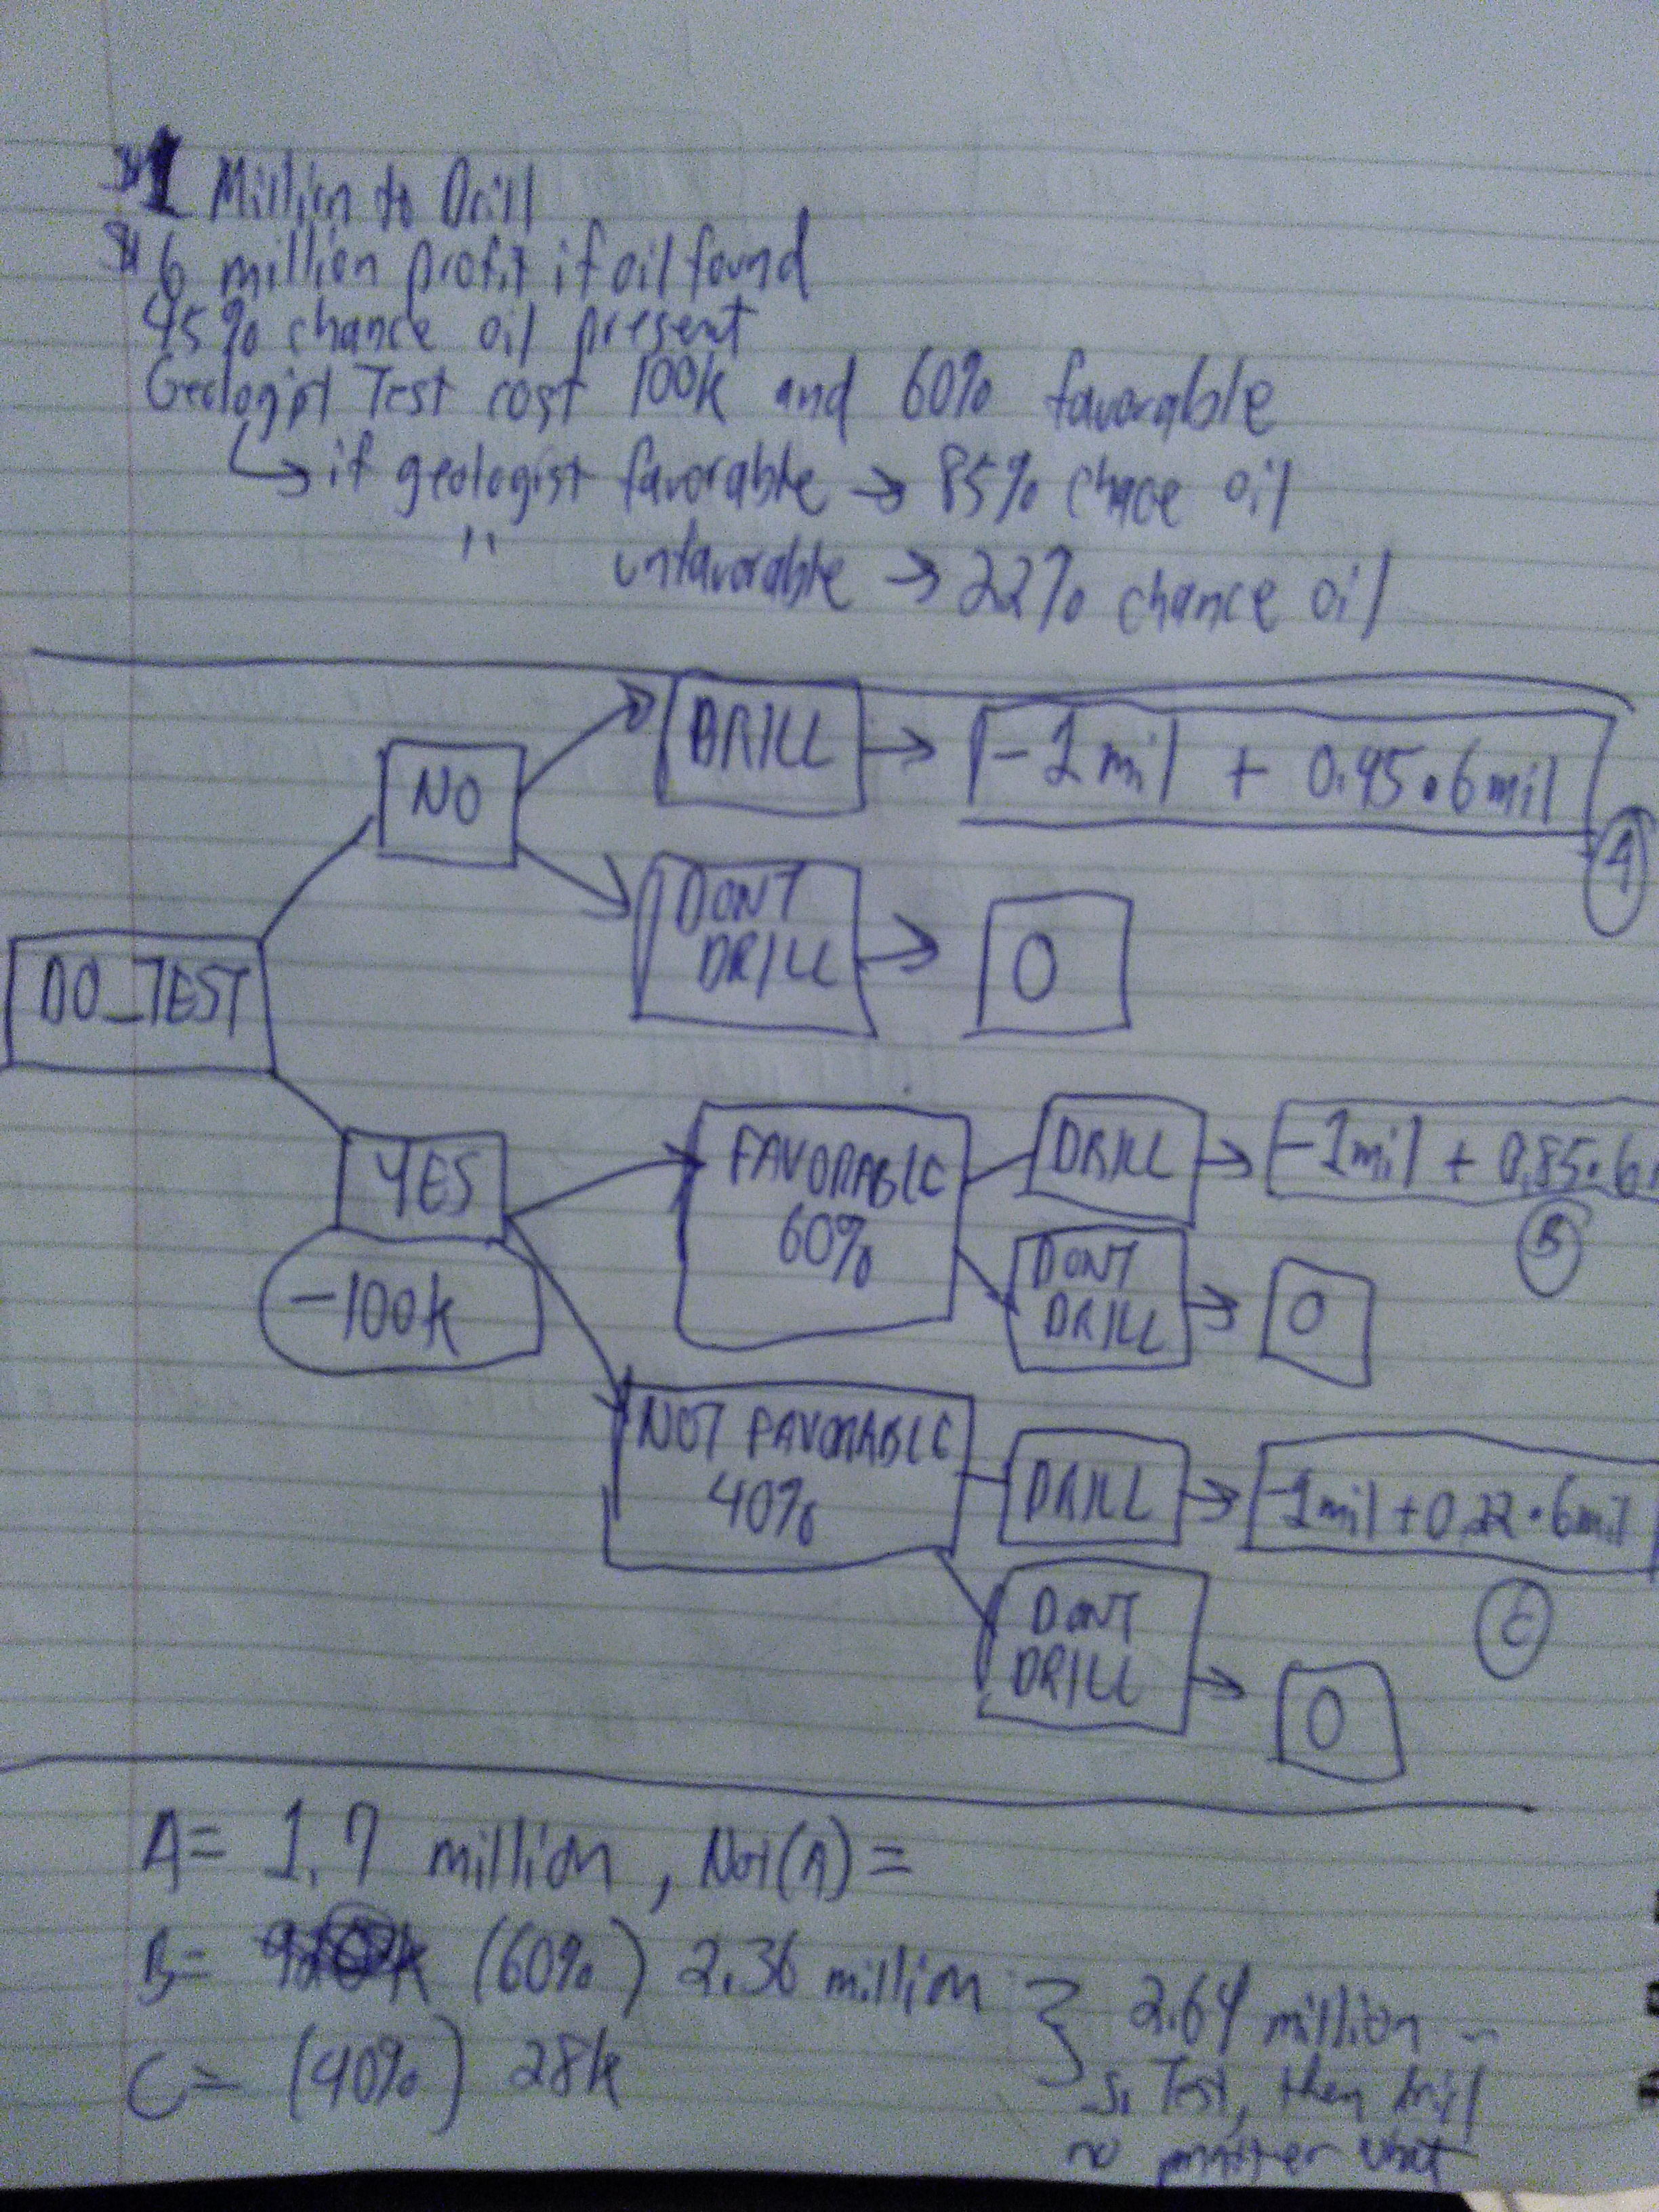 $1 Million to Drill
$6 million profit if oil found
45% chance oil present
Geologist Test cost 100k and 60% favorable
↳ if geologist favorable → 85% chace oil
" unfavorable → 22% chance oil
DRILL → -1 mil + 0.45·6mil
NO
A
DONT
DRILL → 0
DO_TEST
FAVORABLE
60%
DRILL → -1mil + 0.85·6
YES
B
DONT
DRILL → 0
-100k
NOT FAVORABLE
40%
DRILL → -1mil + 0.22·6mil
C
DONT
DRILL → 0
A = 1.7 million, Not(A) =
B = (60%) 2.36 million
C = (40%) 28k
} 2.64 million
So Test, then drill
no matter what